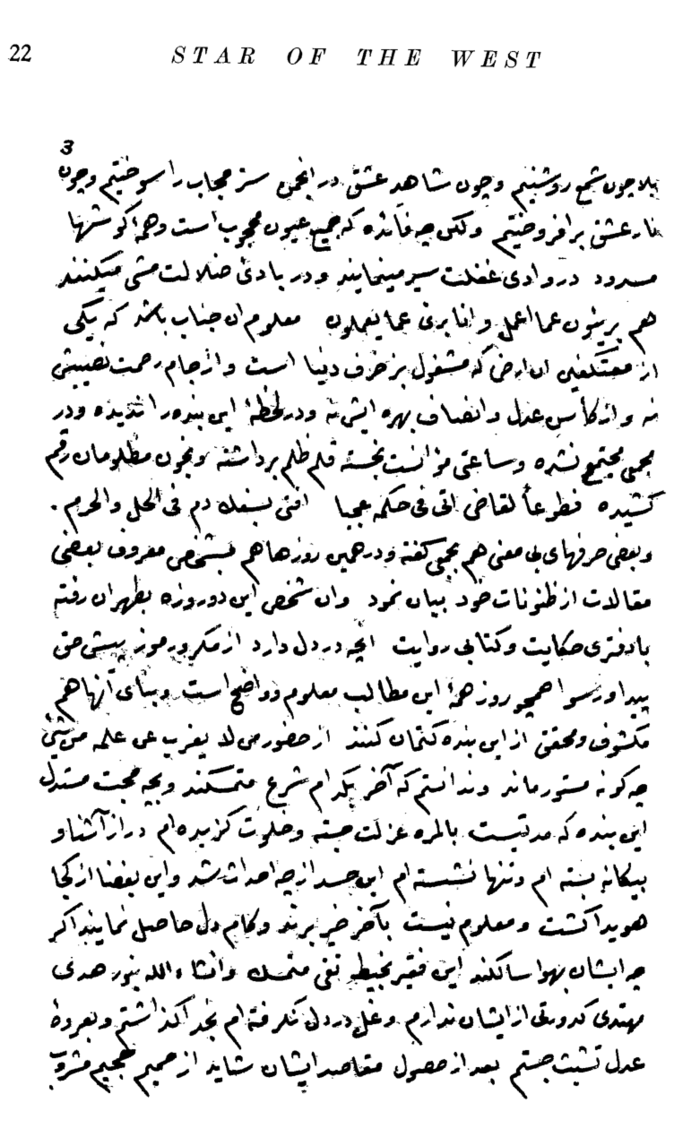 22 STAR OF THE WEST
3
بلا چون شمع روشنیم و چون شاهد عشق در انجمن ستر حجاب را سوختیم و چون
نار عشق بر افروختیم ولکن چه فائده که جمیع عیون محجوبست و همه گوشها
مسدود در وادی غفلت سیر مینمایند و در بادی ضلالت مشی میکنند
هم بریئون عما اعمل و انا بریء عما یعملون معلوم ان جناب باشد که یکی
از معتکفین ان ارض که مشغول بزخرف دنیا است و از جام رحمت نصیبش
نه و از کأس عدل و انصاف بهره ایش نه و در لحظهٔ این بنده را ندیده و در
مجمعی مجتمع نشده و ساعتی موانست نجسته قلم ظلم برداشته و بخون مظلومان رقم
کشیده فطوعاً لقاضٍ اتی فی حکمه عجبا افتی بسفک دم فی الحل والحرم .
و بعضی حرفهای بی معنی هم بجمعی گفته و در همین روزها هم بشخص معروف بعضی
مقالات از ظنونات خود بیان نمود وان شخص این دو روزه بطهران رفته
با دفتری حکایت و کتابی روایت انچه در دل دارد از مکر و رموز پیش حق
پیدا و رسوا همچو روز همهٔ این مطالب معلوم و واضح است و بنای آنها هم
مکشوف و محقق از این بنده کتمان کنند از حضور من لا یعزب عن علمه من شیئ
چه گونه مستور ماند و ندانستم که آخر بکدام شرع متمسکند و بچه حجت مستدل
این بنده که مدتیست بالمره عزلت جسته و خلوت گزیده ام در از آشنا و
بیگانه بسته ام و تنها نشسته ام این حسد از چه احداث شد و این بغضا از کجا
هویدا گشت و معلوم نیست بآخر خیر برند و کام دل حاصل نمایند اگر
چه ایشان بهوا سالکند این فقیر بخیط تقی متمسک و انشاء الله بنور هدی
مهتدی کدورتی از ایشان ندارم و غل در دل نگرفته ام بخدا گذاشتم و بعروهٔ
عدل تشبث جستم بعد از حصول مقاصد ایشان شاید از حمیم جحیم مشروب